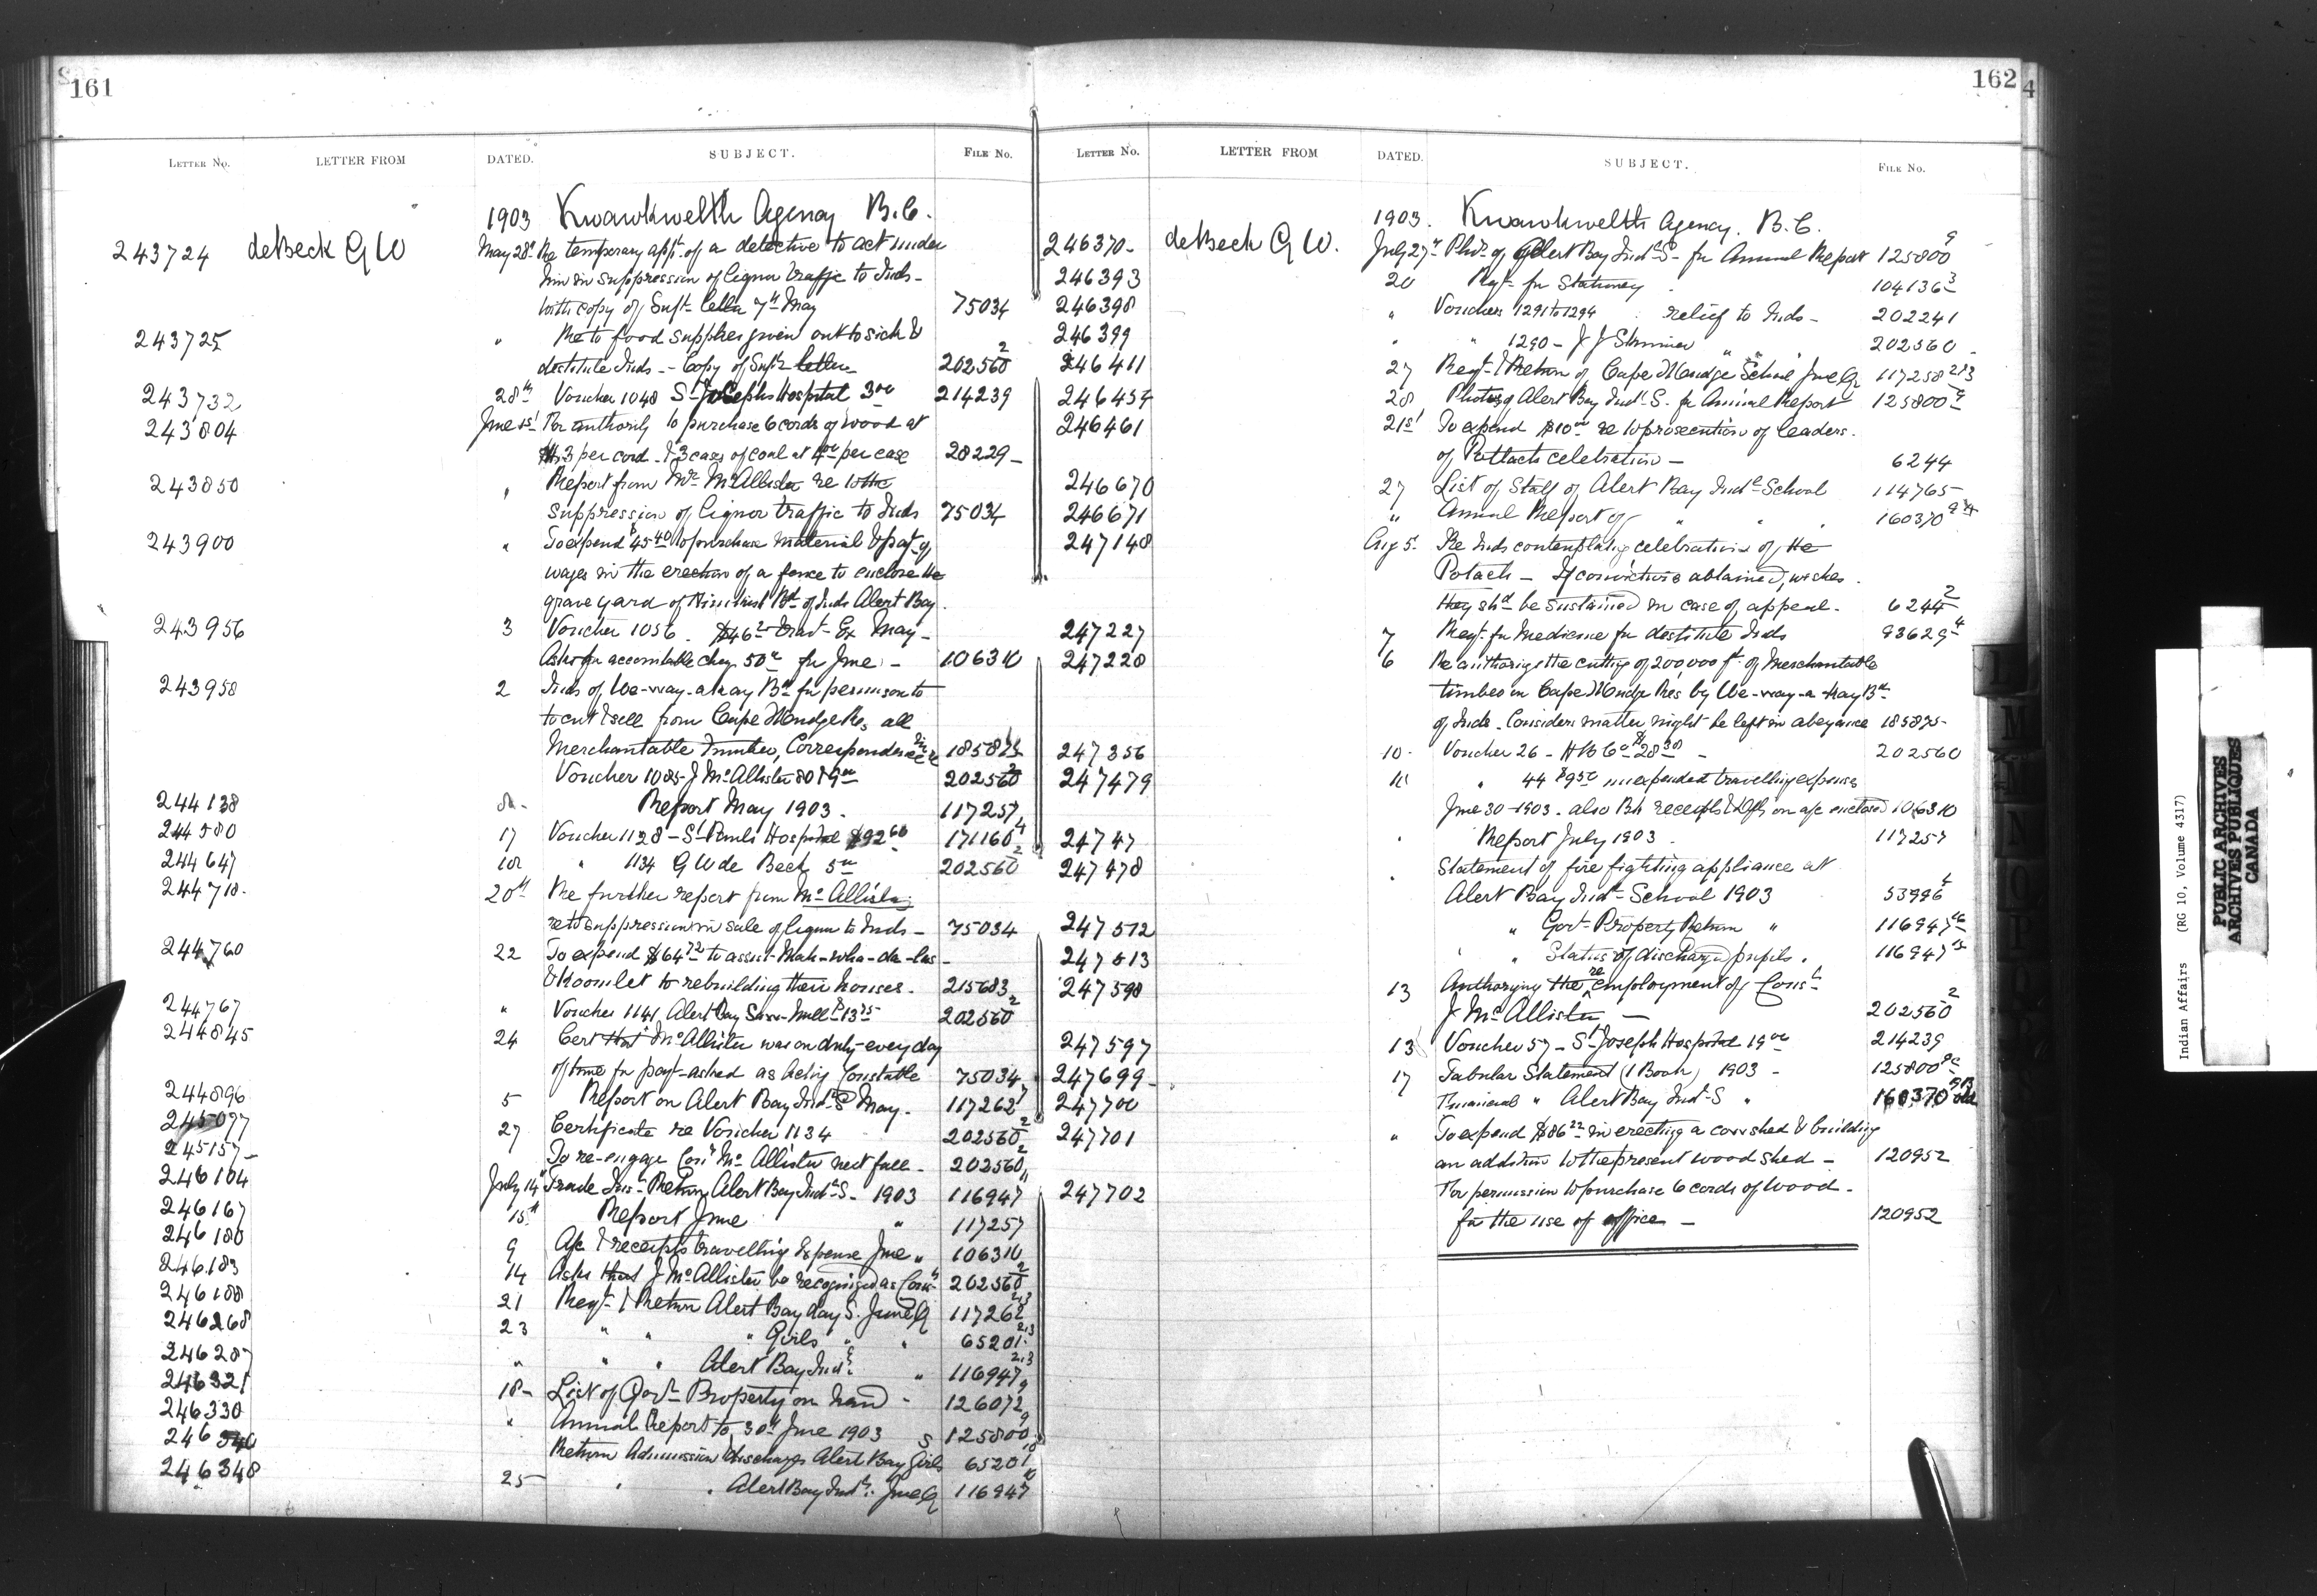 161
LETTER NO. LETTER FROM DATED. SUBJECT. FILE NO.
1903 Kwawkwelth Agency B.C.
243724 deBeck G W May 28th Re temporary appt of a detective to act under
him in suppression of liquor traffic to Inds -
with copy of Supt letter 7th May 75034
243725 " Re to food supplies given out to sick &
destitute Inds - Copy of Supts letter 202560 2
243732 28th Voucher 1048 St Josephs Hospital 3 00 214239
243804 June 1st For authority to purchase 6 cords of wood at
$3 per cord & 3 cases of coal at 4 00 per case 28229 -
243850 " Report from Mr McAllister re to the
suppression of liquor traffic to Inds 75034
243900 " To expend $45 40 to purchase material & pay of
wages in the erection of a fence to enclose the
grave yard of Bd of Inds Alert Bay.
243956 3 Voucher 1056. Travl Ex May -
Asks for accountable chq. 50 00 for June - 106310
243958 2 Inds of We-way-akay Bd for permission to
to cut & sell from Cape Mudge Res, all
Merchantable timber, Correspondence
Voucher 1085 J McAllister 202560 2
244138 Report May 1903. 117257
244580 17 Voucher 1128 - St Pauls Hospital $92 60 171160 4
244647 " 1134 G W de Beck 5 00 202560 2
244718 20th Re further report from McAllister
re to suppression in sale of liquor to Inds - 75034
244760 22 To expend $64 72 to assist Mah-wha-da-las -
& Koomlet to rebuilding their houses. 215683
244767 " Voucher 1141, Alert Bay Saw-Mill $13 75 202560 2
244845 24 Cert that McAllister was on duty every day
of time for pay asked as Acting Constable 75034
244896 5 Report on Alert Bay Indl S May. 117262 7
245077 27 Certificate re Voucher 1134 202560 2
245157 - To re-engage Const McAllister next fall - 202560 2
246104 July 14 Trade Ins Return Alert Bay Indl S - 1903 116947
246167 15th Report June " 117257
246180 9 A/c & receipts travelling Expense June " 106310
246183 14 Asks that J McAllister be recognized as Const 202560 2
246188 21 Reqt & Return Alert Bay day S. June Q 117262 2,3
246268 23 " " " Girls " " 65201 2,3
246287 " " " Alert Bay Indl " 116947 2,3
246321 18 - List of Govt Property on hand - 126072 9
246330 " Annual Report to 30th June 1903 125800 9
246340 Return Admission & discharges Alert Bay Girls S 65201
246348 25 " " Alert Bay Indl: June Q 116947
162
LETTER NO. LETTER FROM DATED. SUBJECT. FILE NO.
1903. Kwawkwelth Agency. B.C.
246370 - deBeck G W. July 27th Photo of Alert Bay Indl S - for Annual Report 125800 9
246393 20 Reqt for Stationery 104136 3
246398 " Vouchers 1291 to 1294 relief to Inds - 202241
246399 " " 1290 - J J Skinner " " " 202560 -
246411 27 Reqt & Return of Cape Mudge School June Q 117258 2&3
246454 28 Photos of Alert Bay Indl S - for Annual Report 125800 9
246461 21st To expend $10 00 re to prosecution of leaders.
of Potlatch celebration - 6244
246670 27 List of Staff of Alert Bay Indl School 114765
246671 " Annual Report of " " " 160370
247148 Aug 5. Re Inds contemplating celebration of the
Potach - If conviction is obtained, wishes
they shd be sustained in case of appeal. 6244 2
247227 7 Reqt for Medicine for destitute Inds 93629 4
247228 6 Re authorizing the cutting of 200,000 ft of Merchantable
timber on Cape Mudge Res by We-way-a-kay Bd
of Inds. Considers matter might be left in abeyance 185875 -
247356 10 - Voucher 26 - H B Co $28 30 - 202560
247479 " 44 $9 50 unexpended travelling expenses
June 30 - 1903. also Bk receipts & Dfts on a/c enclosed 106310
24747 " Report July 1903. 117257
247478 " Statement of fire fighting appliance at
Alert Bay Indl School 1903 53996
247512 " Govt Property Return " 116947
247513 " Status of discharged pupils. 116947
247598 13 Authorizing the re employment of Const
J McAllister - 202560 2
247597 13 Voucher 57 - St Joseph Hospital 19 00 214239
247699 - 17 Tabular Statement (1 Book) 1903 - 125800
247700 Financial " Alert Bay Indl S " 160370
247701 " To expend $86 22 in erecting a cow shed & building
an addition to the present wood shed - 120952
247702 For permission to purchase 6 cords of wood -
for the use of office - 120952
Indian Affairs (RG 10, Volume 4317)
PUBLIC ARCHIVES
ARCHIVES PUBLIQUES
CANADA